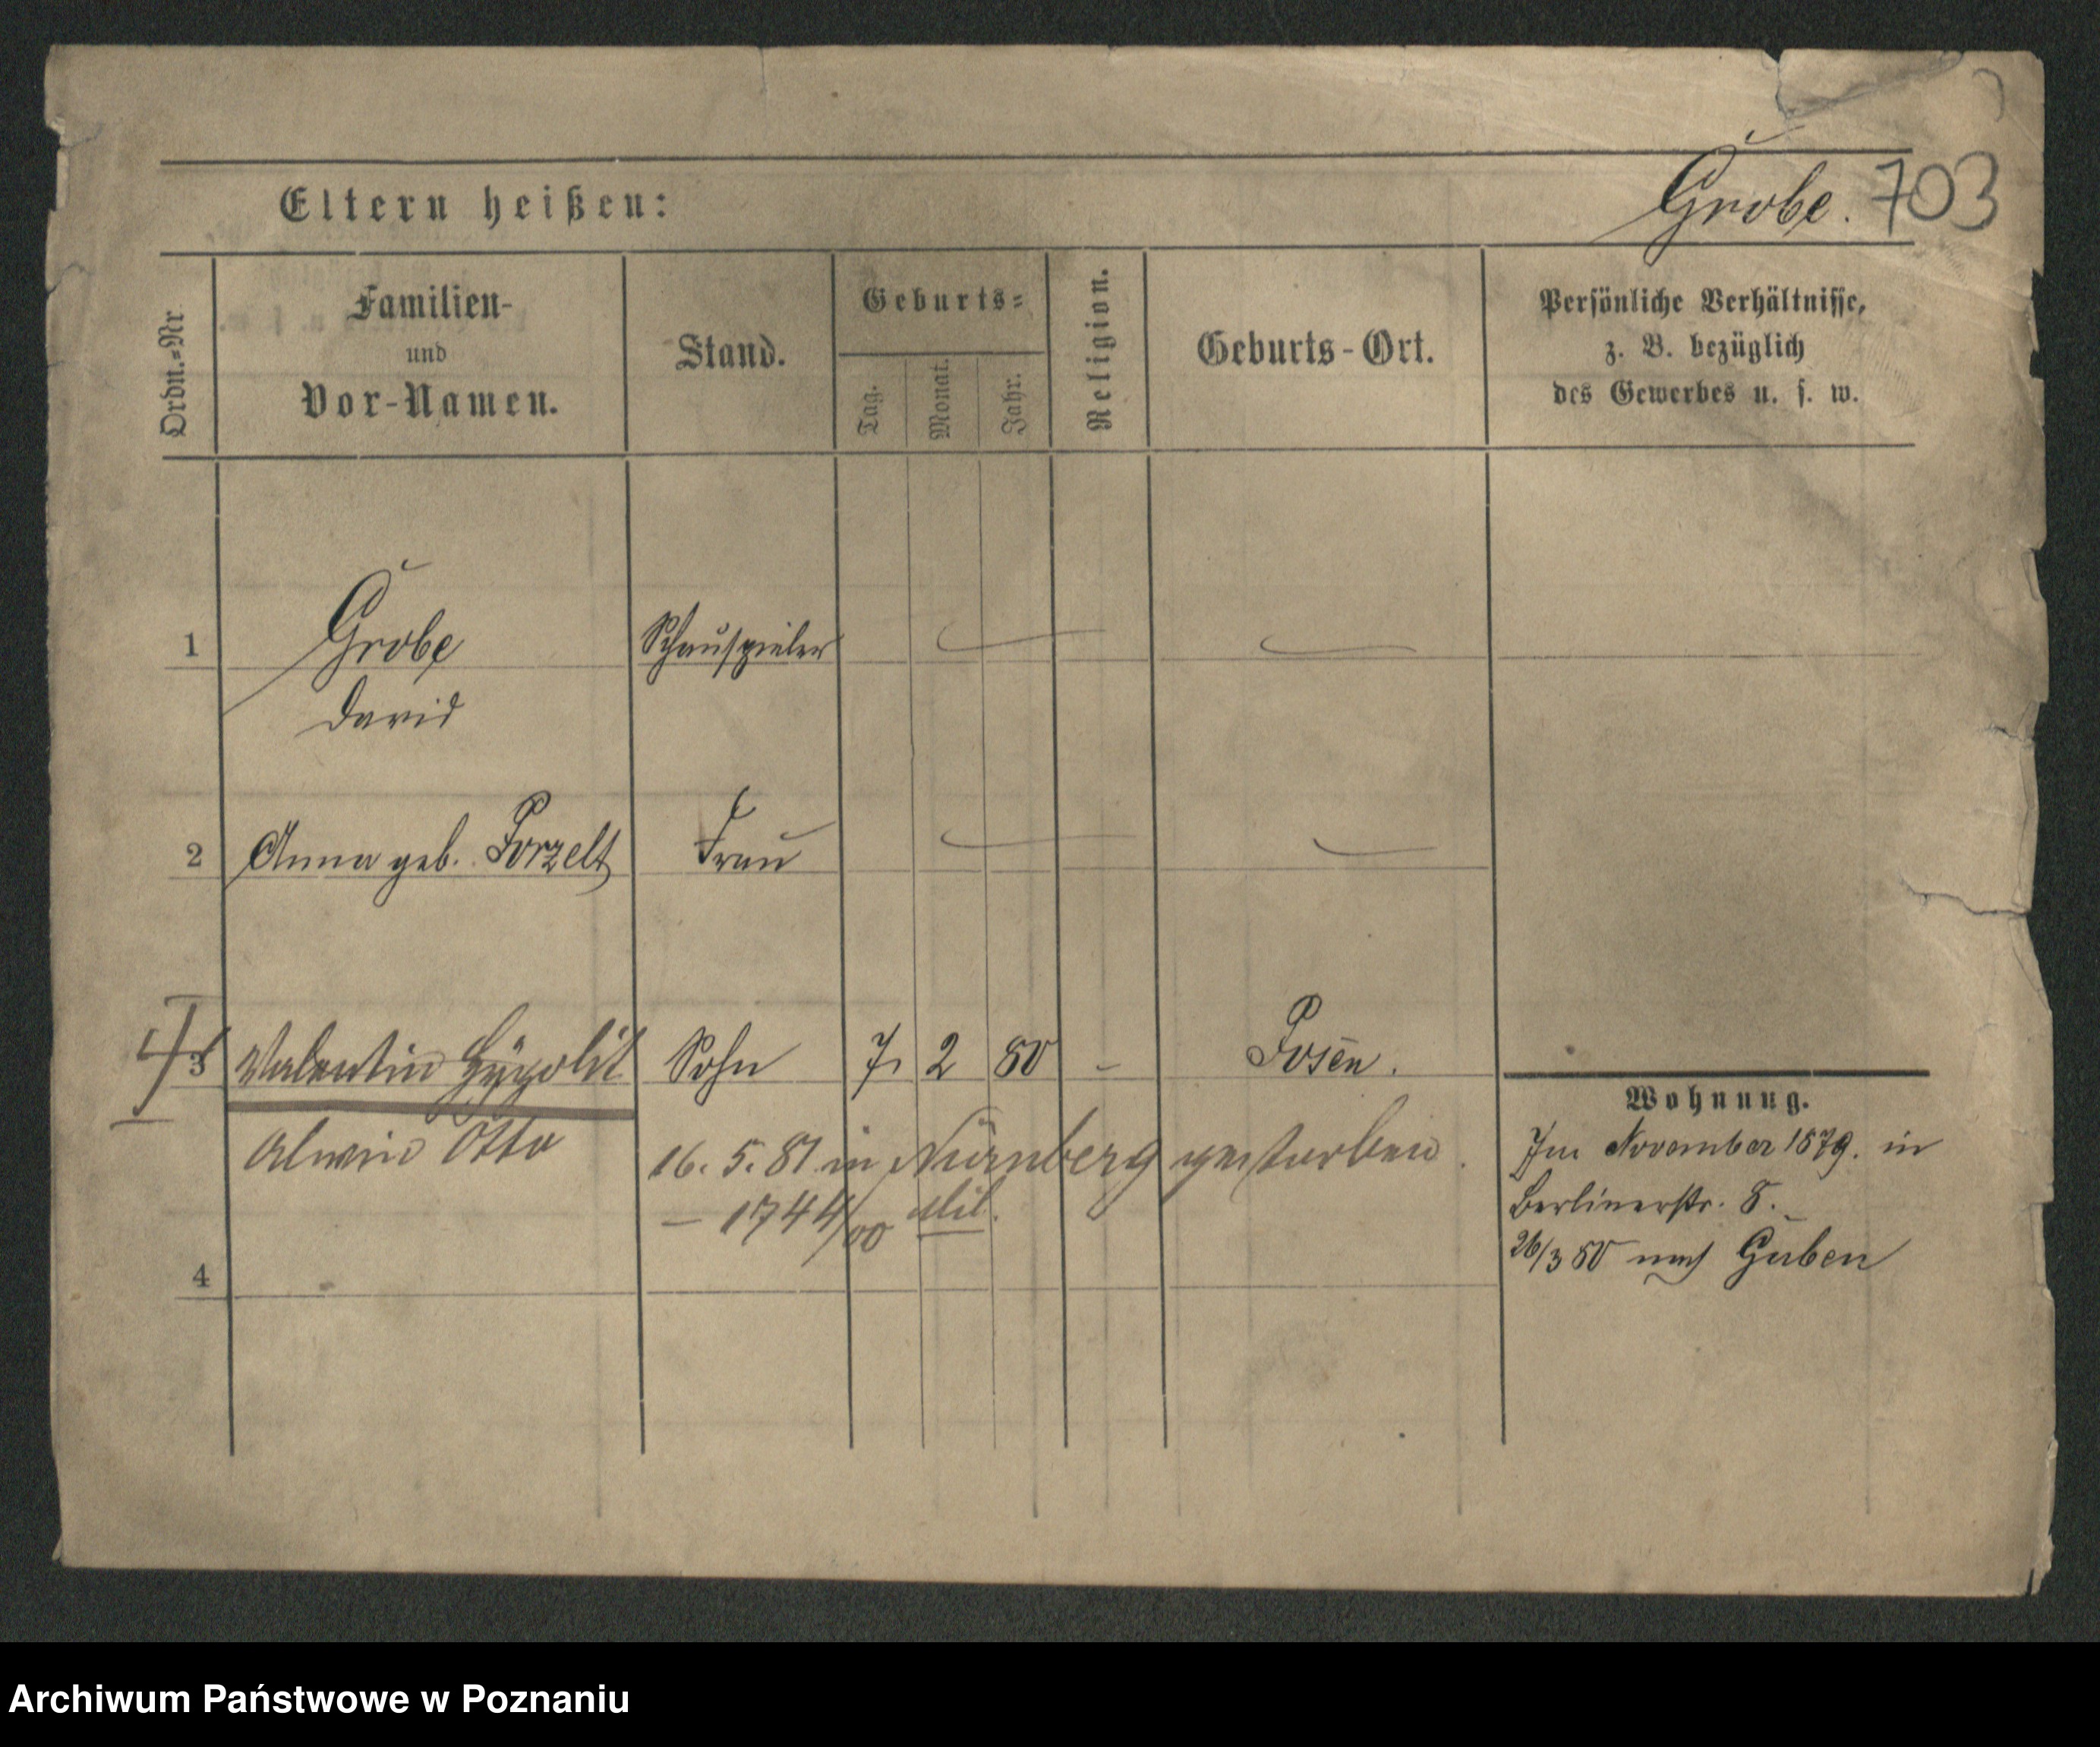 Grobe. 703
Eltern heißen:
Ordn.=Nr
Familien-
und
Vor-Namen.
Stand.
Geburts=
Tag.
Monat.
Jahr.
Religion.
Geburts-Ort.
Persönliche Verhältnisse,
z. B. bezüglich
des Gewerbes u. s. w.
1 Grobe Schauspieler
David
2 Anna geb. Porzelt Frau
3 Valentin Hypolit Sohn 7 2 80 - Posen.
Alwin Otto
16. 5. 81 in Nürnberg gestorben.
– 1744/00 Mil.
4
Wohnung.
Im November 1879. in
Berlinerstr. 8.
26/3 80 nach Guben
Archiwum Państwowe w Poznaniu